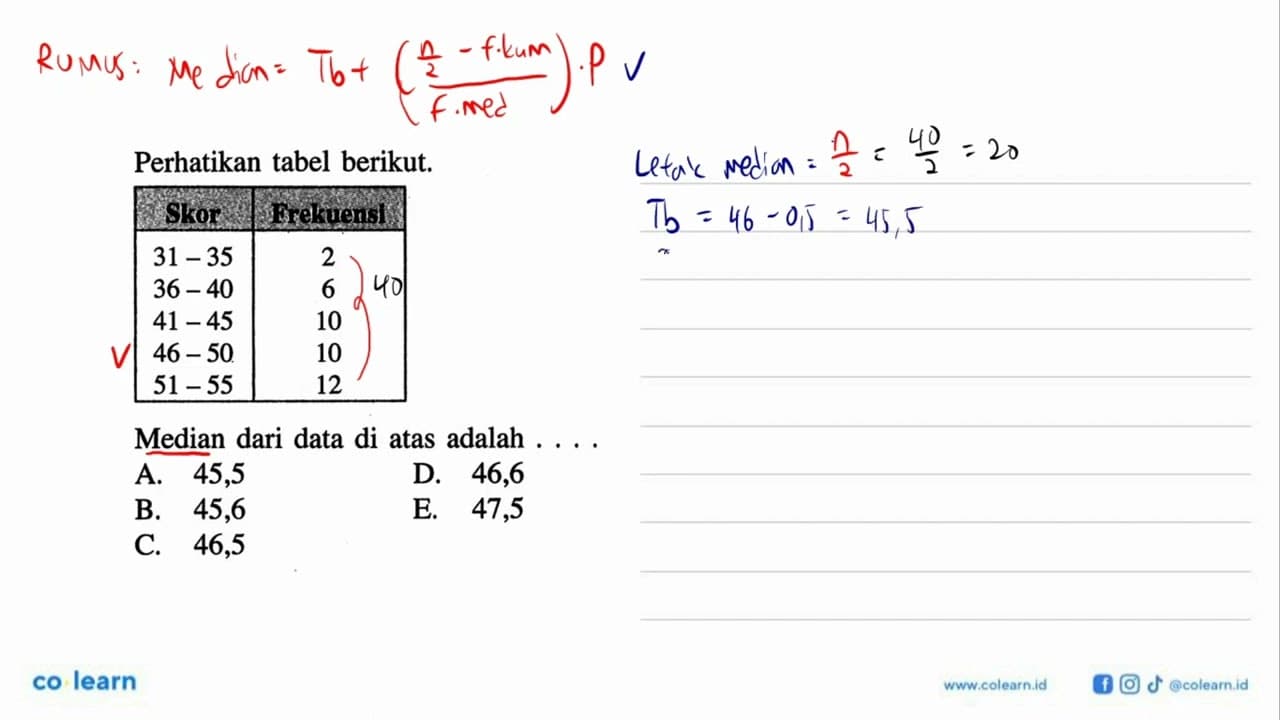 RUMUS: Median = Tb + ( (n/2 - f.kum) / f.med ) . P ✓
Perhatikan tabel berikut.
Skor Frekuensi
31 – 35 2
36 – 40 6
41 – 45 10
46 – 50 10
51 – 55 12
40
V
Median dari data di atas adalah . . . .
A. 45,5
B. 45,6
C. 46,5
D. 46,6
E. 47,5
Letak median = n/2 = 40/2 = 20
Tb = 46 - 0,5 = 45,5
co learn
www.colearn.id
@colearn.id